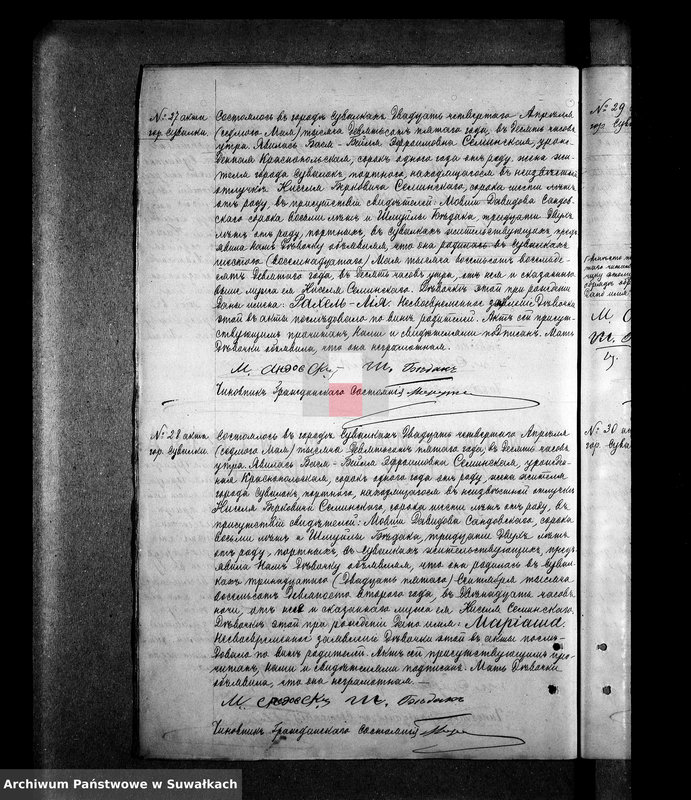 № 27 акта
гор. Сувалки.
Состоялось въ городѣ Сувалкахъ Двадцать четвертаго Апрѣля
(седьмого Мая) тысяча Девятьсотъ пятаго года, въ Десять часовъ
утра. Явилась Бася-Бейла Эфроимовна Селминская, урож-
денная Краснопольская, сорокъ одного года отъ роду, жена жи-
теля города Сувалокъ, портного, находящагося въ неизвѣстной
отлучкѣ Киселя Берковича Селминскаго, сорока шести лѣтъ
отъ роду, въ присутствіи свидѣтелей: Мовши Давидова Сандов-
скаго сорока восьми лѣтъ и Шмуйлы Бѣдака, тридцати Двухъ
лѣтъ отъ роду, портныхъ, въ Сувалкахъ жительствующихъ, предъ-
явила Намъ Дѣвочку объявляя, что она родилась въ Сувалкахъ
шестого (восемнадцатаго) Мая тысяча восемьсотъ восемьде-
сятъ Девятаго года, въ Десять часовъ утра, отъ нея и сказаннаго
выше мужа ея Киселя Селминскаго. Дѣвочкѣ этой при рожденіи
Даны имена: Рахель-Лія. Несвоевременное заявленіе Дѣвочки
этой въ акты послѣдовало по винѣ родителей. Актъ сей присут-
ствующимъ прочитанъ, Нами и свидѣтелями подписанъ. Мать
Дѣвочки объявила, что она неграмотная.
М. Сандовски Ш. Бѣдакъ
Чиновникъ Гражданскаго Состоянія
№ 28 акта
гор. Сувалки.
Состоялось въ городѣ Сувалкахъ Двадцать четвертаго Апрѣля
(седьмого Мая) тысяча Девятьсотъ пятаго года, въ Десять часовъ
утра. Явилась Бася-Бейла Эфроимовна Селминская, урожден-
ная Краснопольская, сорокъ одного года отъ роду, жена жителя
города Сувалокъ, портного, находящагося въ неизвѣстной отлучкѣ
Киселя Берковича Селминскаго, сорока шести лѣтъ отъ роду, въ
присутствіи свидѣтелей: Мовши Давидова Сандовскаго, сорока
восьми лѣтъ и Шмуйлы Бѣдака, тридцати Двухъ лѣтъ
отъ роду, портныхъ, въ Сувалкахъ жительствующихъ, предъ-
явила Намъ Дѣвочку объявляя, что она родилась въ Сувал-
кахъ тринадцатаго (Двадцать пятаго) Сентября тысяча
восемьсотъ Девяносто второго года, въ Двѣнадцать часовъ
ночи, отъ нея и сказаннаго мужа ея Киселя Селминскаго.
Дѣвочкѣ этой при рожденіи Дано имя: Маріаша.
Несвоевременное заявленіе Дѣвочки этой въ акты послѣ-
довало по винѣ родителей. Актъ сей присутствующимъ про-
читанъ, Нами и свидѣтелями подписанъ. Мать Дѣвочки
объявила, что она неграмотная.
М. Сандовски Ш. Бѣдакъ
Чиновникъ Гражданскаго Состоянія
№ 29
гор. Сув
№ 30 ак
гор. Сува
Archiwum Państwowe w Suwałkach